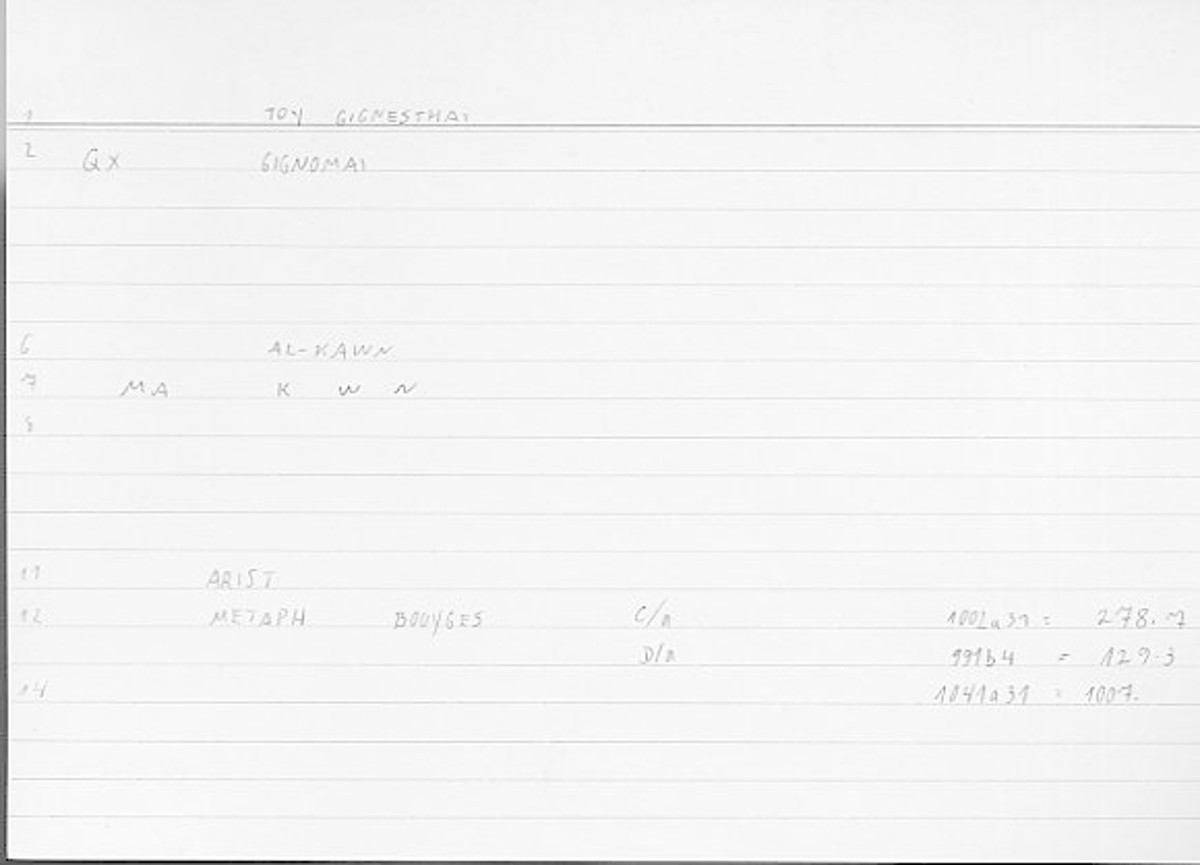 1 TOY GIGNESTHAI
2 QX GIGNOMAI
6 AL-KAWN
7 MA K W N
8
11 ARIST
12 METAPH BOUYGES C/a 1002a31 = 278.7
D/a 991b4 = 129.3
14 1041a31 = 1007.